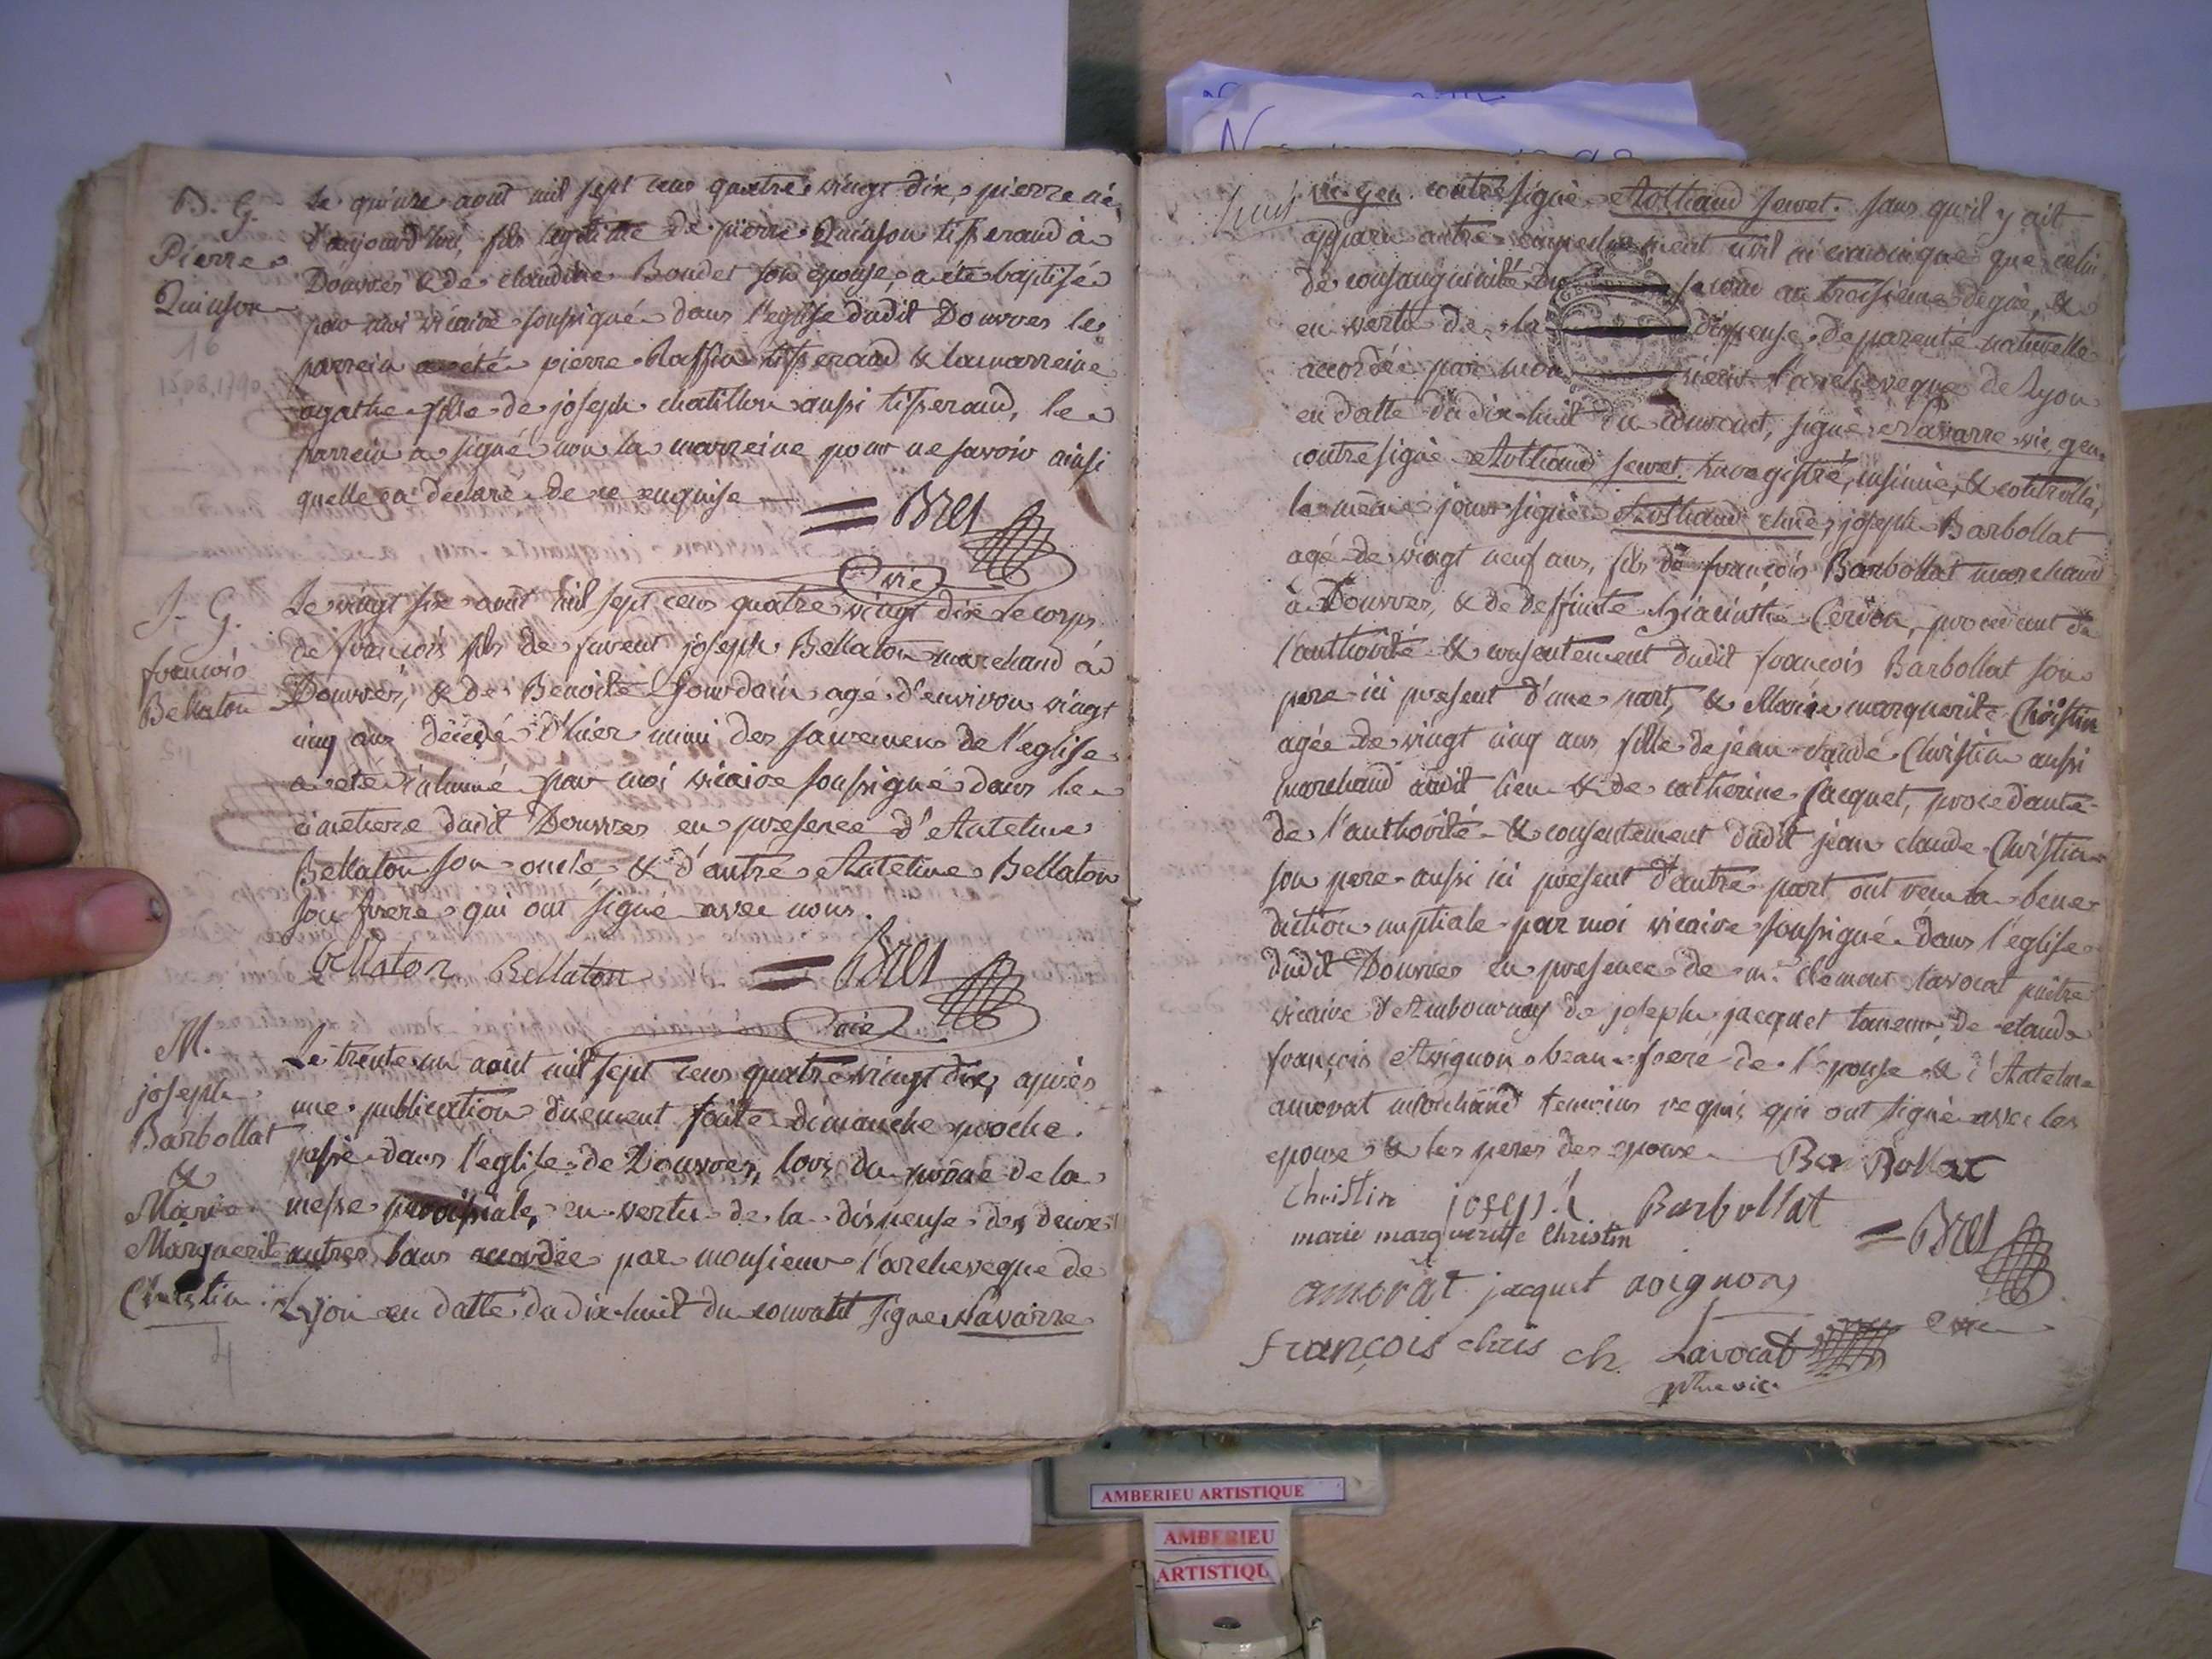 B. G.
Pierre
Quinson
16
1508,1790
le quinze aout mil sept cens quatre vingt dix, pierre né
d'aujourd'hui, fils legitime de pierre Quinson tisserand à
Douvres & de claudine Boudet son epouse, a été baptisé
par moi vicaire soussigné dans l'eglise dudit Douvres le
parrein a été pierre Raffin tisserand & la marreine
agathe fille de joseph chatillon aussi tisserand, le
parrein a signé non la marreine pour ne savoir ainsi
quelle a declaré de ce enquise = Bret
vic
S. G.
françois
Bellaton
Le vingt six aout mil sept cens quatre vingt dix le corps
de françois fils de furent joseph Bellaton marchand à
Douvres, & de Benoite Jourdain agé d'environ vingt
cinq ans décédé d'hier muni des sacremens de l'eglise
a été inhumé par moi vicaire soussigné dans le
cimetiere dudit Douvres en presence d'Antelme
Bellaton son oncle & d'autre Antelme Bellaton
son frere qui ont signé avec nous.
Bellaton Bellaton = Bret
vic
M.
joseph
Barbollat
&
Marie
Marguerite
Christin
4
Le trente un aout mil sept cens quatre vingt dix, après
une publication duement faite dimanche proche
passé dans l'eglise de Douvres, lors du prône de la
messe paroissiale, en vertu de la dispense des deux
autres bans accordée par monsieur l'archeveque de
Lyon en datte du dix-huit du courant signe Navarre
huit
vic. gen. contresigné Rolliand secret. sans qu'il y ait
apparu autre empechement civil ni canonique que celui
de consanguinité du second au troisieme degré, &
en vertu de la dispense de parenté naturelle
accordée par mon sieur l'archeveque de Lyon
en datte du dix-huit du courant, signé Navarre vic, gen.
contresigné Rolliand secret. enregistré, insinué, & controllé,
le même jour signé Rolliand joseph Barbollat
agé de vingt neuf ans, fils de françois Barbollat marchand
à Douvres, & de deffunte hiacinthe Cerdon, procedant de
l'authorité & consentement dudit françois Barbollat son
pere ici present d'une part, & Marie marguerite Christin
agée de vingt cinq ans fille de jean claude Christin aussi
marchand audit lieu & de catherine jacquet, procedante
de l'authorité & consentement dudit jean claude Christin
son pere aussi ici present d'autre part ont recu la bene
diction nuptiale par moi vicaire soussigné dans l'eglise
dudit Douvres en presence de mr. clement Lavocat prêtre
vicaire d'Ambournay de joseph jacquet taneur, de claude
françois Avignon beau-frere de l'epouse & d'Antelme
amorat marchand temoins requis qui ont signé avec les
epoux & les peres des epoux Bar Bollat
Christin joseph Barbollat
marie margueritte Christin = Bret
amorat jacquet avignon
vic
françois chris ch. Lavocat
ptre vic.
AMBERIEU ARTISTIQUE
AMBERIEU
ARTISTIQU